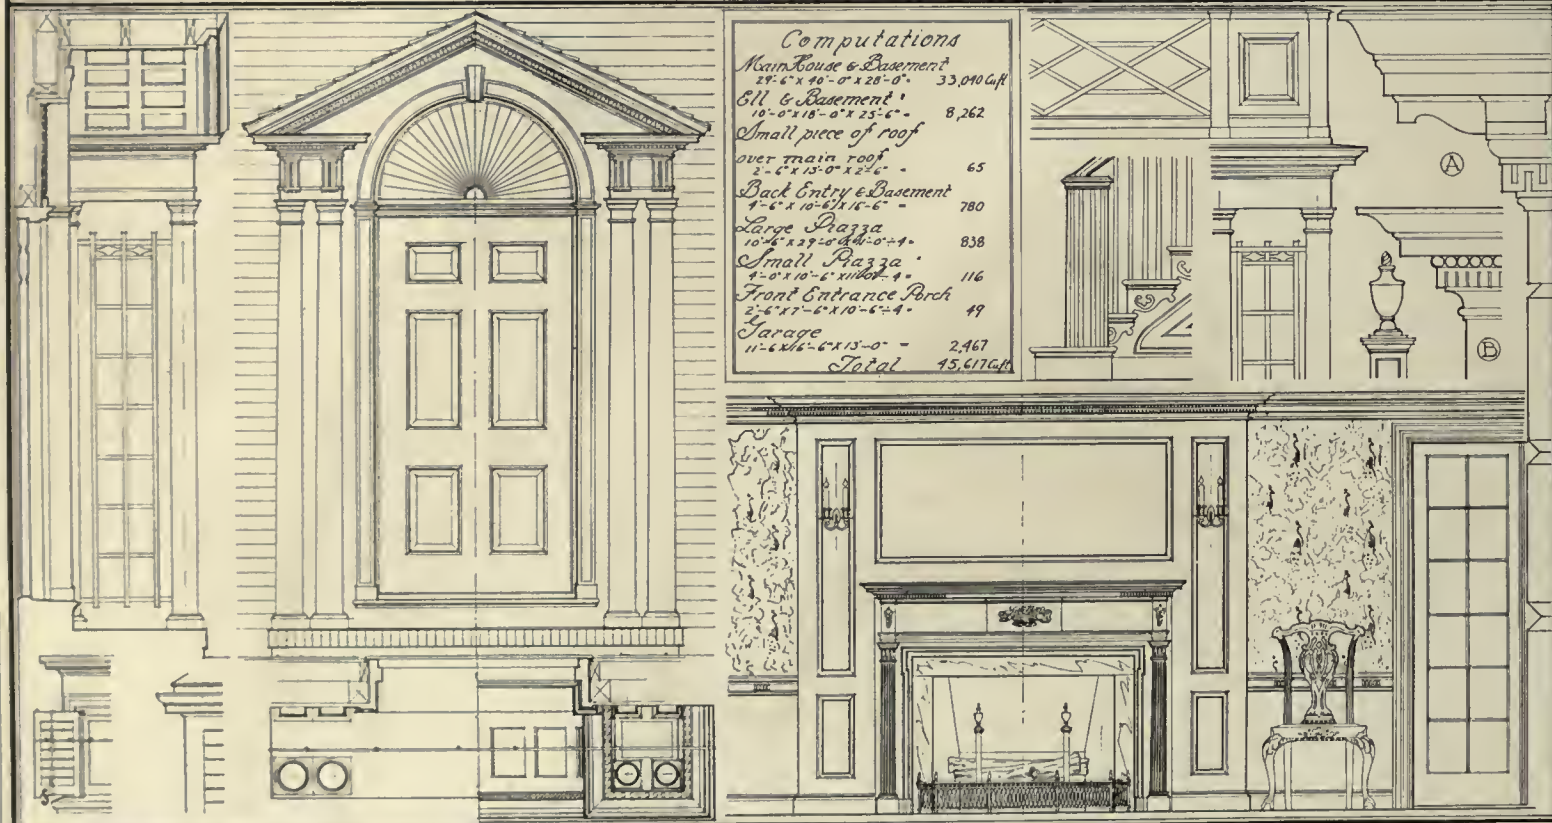 Computations
Main House & Basement
29'-6" x 40'-0" x 28'-0" = 33,040 Cu ft
Ell & Basement
18'-0" x 18'-0" x 25'-6" = 8,262
Small piece of roof
over main roof
2'-6" x 13'-0" x 2'-6" = 65
Back Entry & Basement
4'-6" x 10'-6" x 16'-6" = 780
Large Piazza
10'-6" x 29'-0" x 11'-0" ÷ 4 = 838
Small Piazza
4'-0" x 10'-6" x 11'-0" ÷ 4 = 116
Front Entrance Porch
2'-6" x 7'-6" x 10'-6" ÷ 4 = 49
Garage
11'-6 x 16'-6" x 13'-0" = 2,467
Total 45,617 Cu ft
A
B